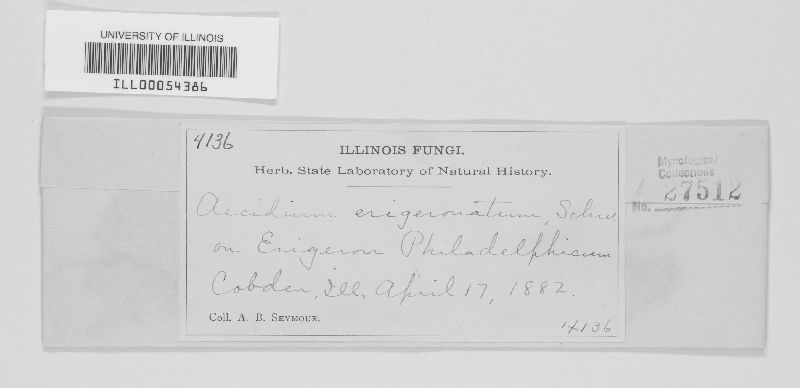 UNIVERSITY OF ILLINOIS
ILL00054386
4136
ILLINOIS FUNGI.
Herb. State Laboratory of Natural History.
Aecidium erigeronatum, Schw.
on Erigeron Philadelphicum
Cobden, Ill. April 17, 1882.
Coll. A. B. Seymour.
4136
Mycological
Collections
No. 27512